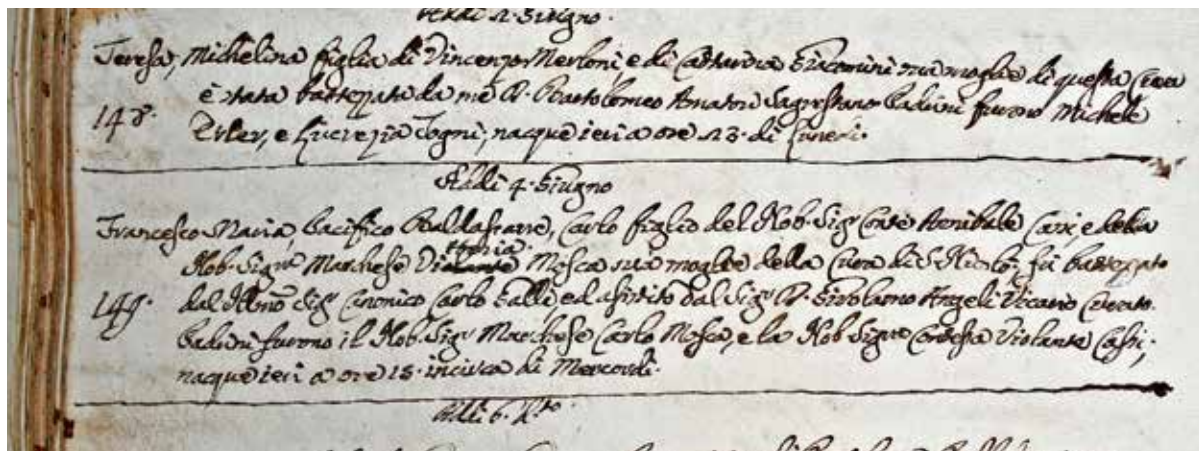 Addi 2. Giugno.
Teresa, Michelina figlia di Vincenzo Merloni, e di Giacomini sua moglie di questa Cura
148. è stata battezzata da me D. Bartolomeo Amatori Sagrestano Padrini furono Michele
Erler, e Lucrezia Togni; nacque ieri a ore 23. di Lunedi.
Addi 4. Giugno
Francesco Maria, Pacifico Baldassarre, Carlo figlio del Nob. Sigr Conte Annibale e della
Nob. Sigra Marchese Vittoria Mosca sua moglie della Cura di S. Nicolò; fù battezzato
149. dal Sigr Canonico Carlo Galli, ed assistito dal Sigr D. Girolamo Angeli Vicario Curato.
Padrini furono il Nob. Sigr Marchese Carlo Mosca, e la Nob. Sigra Contessa Violante
nacque ieri a ore 15. incirca di Mercordi.
Addi 6. do